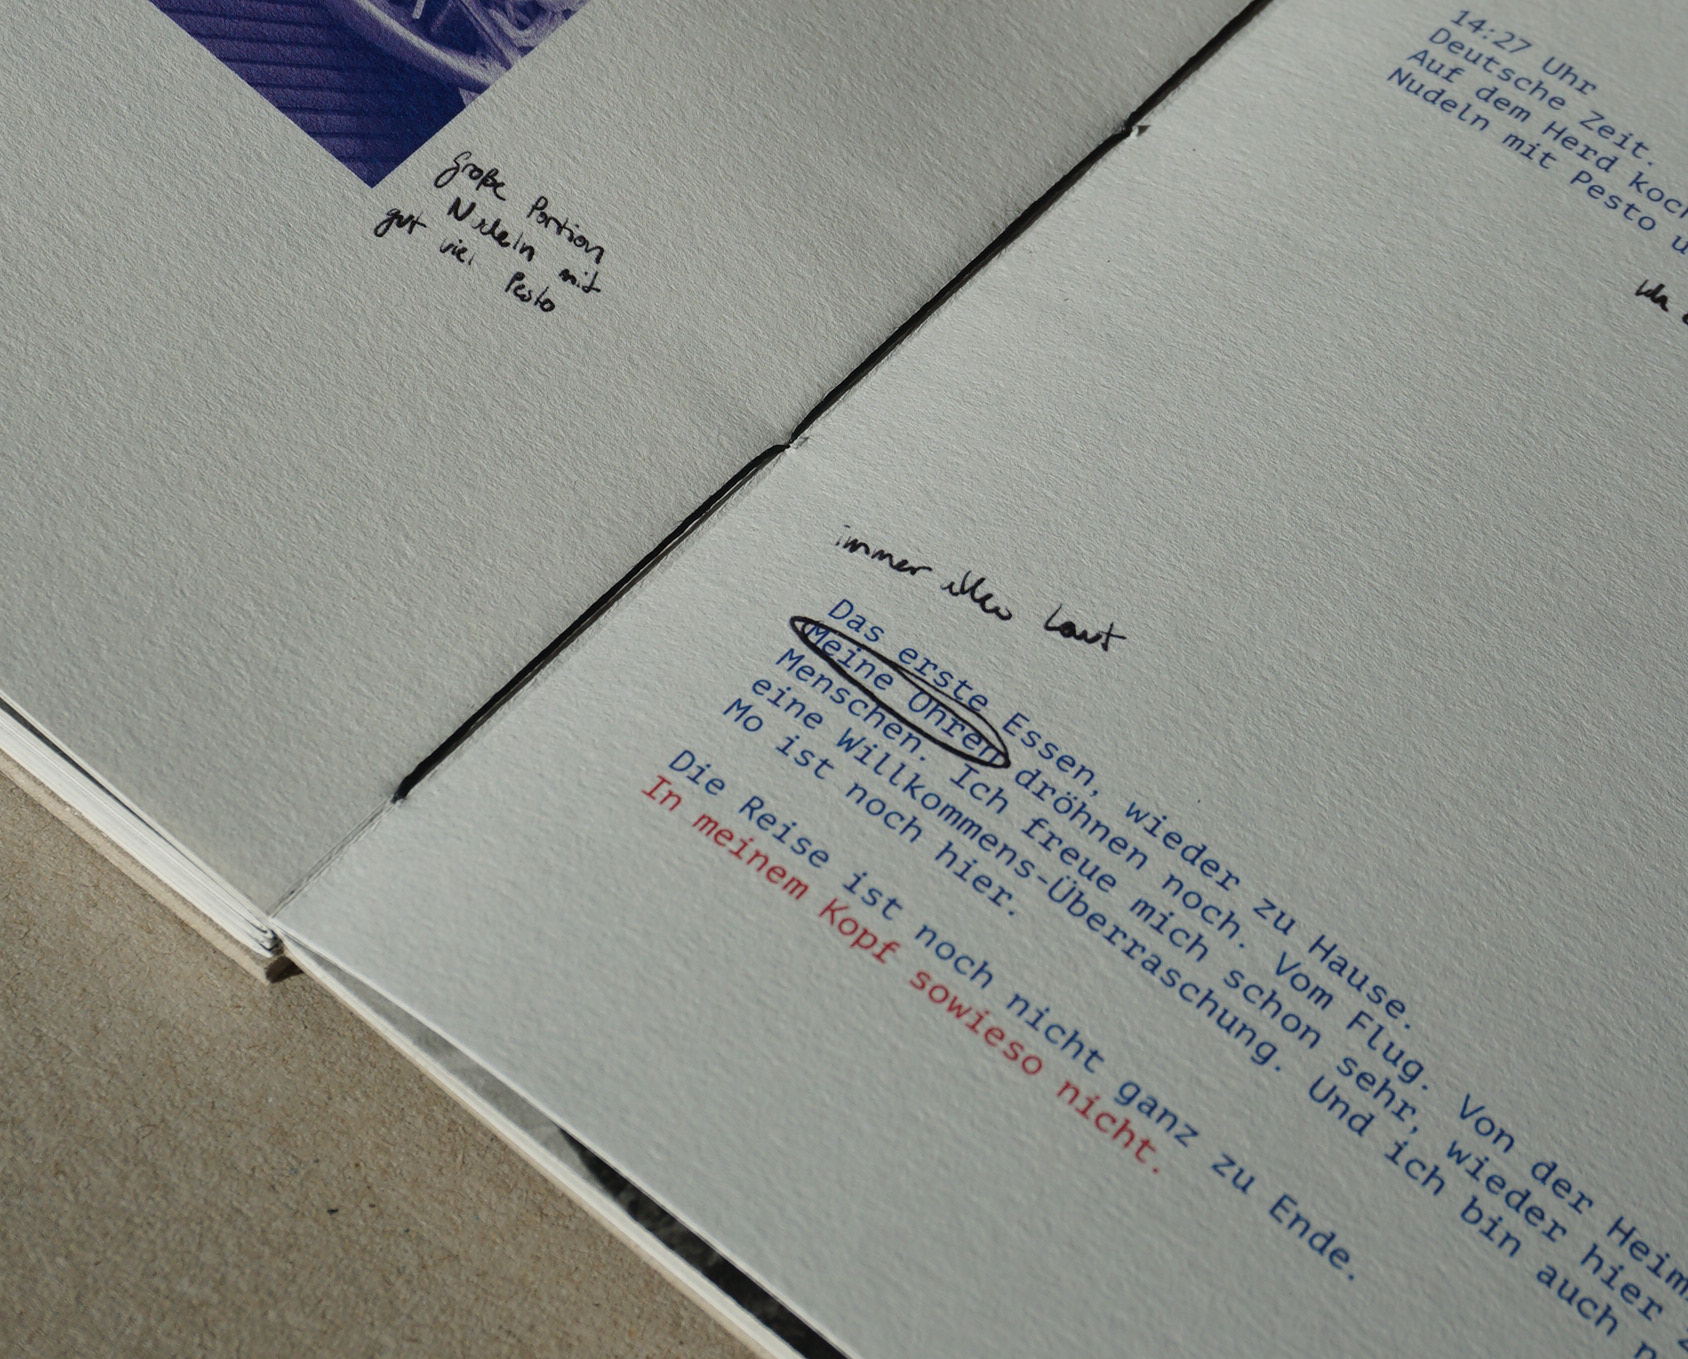 Große Portion
Nudeln mit
gut viel Pesto
14:27 Uhr
Deutsche Zeit.
Auf dem Herd koch
Nudeln mit Pesto u
immer laut
Das erste Essen, wieder zu Hause.
Meine Ohren dröhnen noch. Vom Flug. Von der Heim
Menschen. Ich freue mich schon sehr, wieder hier z
eine Willkommens-Überraschung. Und ich bin auch n
Mo ist noch hier.
Die Reise ist noch nicht ganz zu Ende.
In meinem Kopf sowieso nicht.